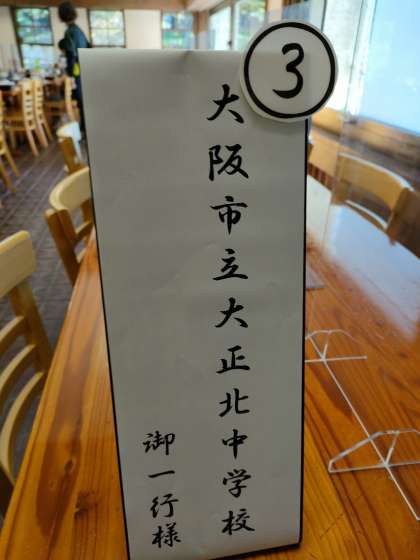 3
大阪市立大正北中学校
御一行様